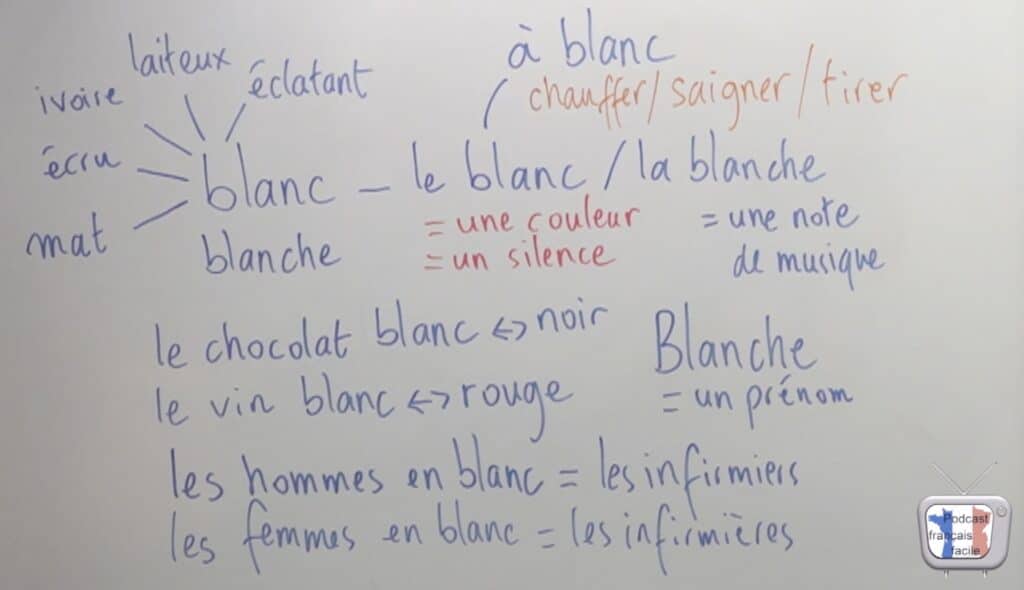 laiteux
à blanc
ivoire
éclatant
chauffer/saigner/tirer
écru
blanc – le blanc / la blanche
mat
blanche
= une couleur
= une note
= un silence
de musique
le chocolat blanc <-> noir
Blanche
le vin blanc <-> rouge
= un prénom
les hommes en blanc = les infirmiers
les femmes en blanc = les infirmières
Podcast
français
facile